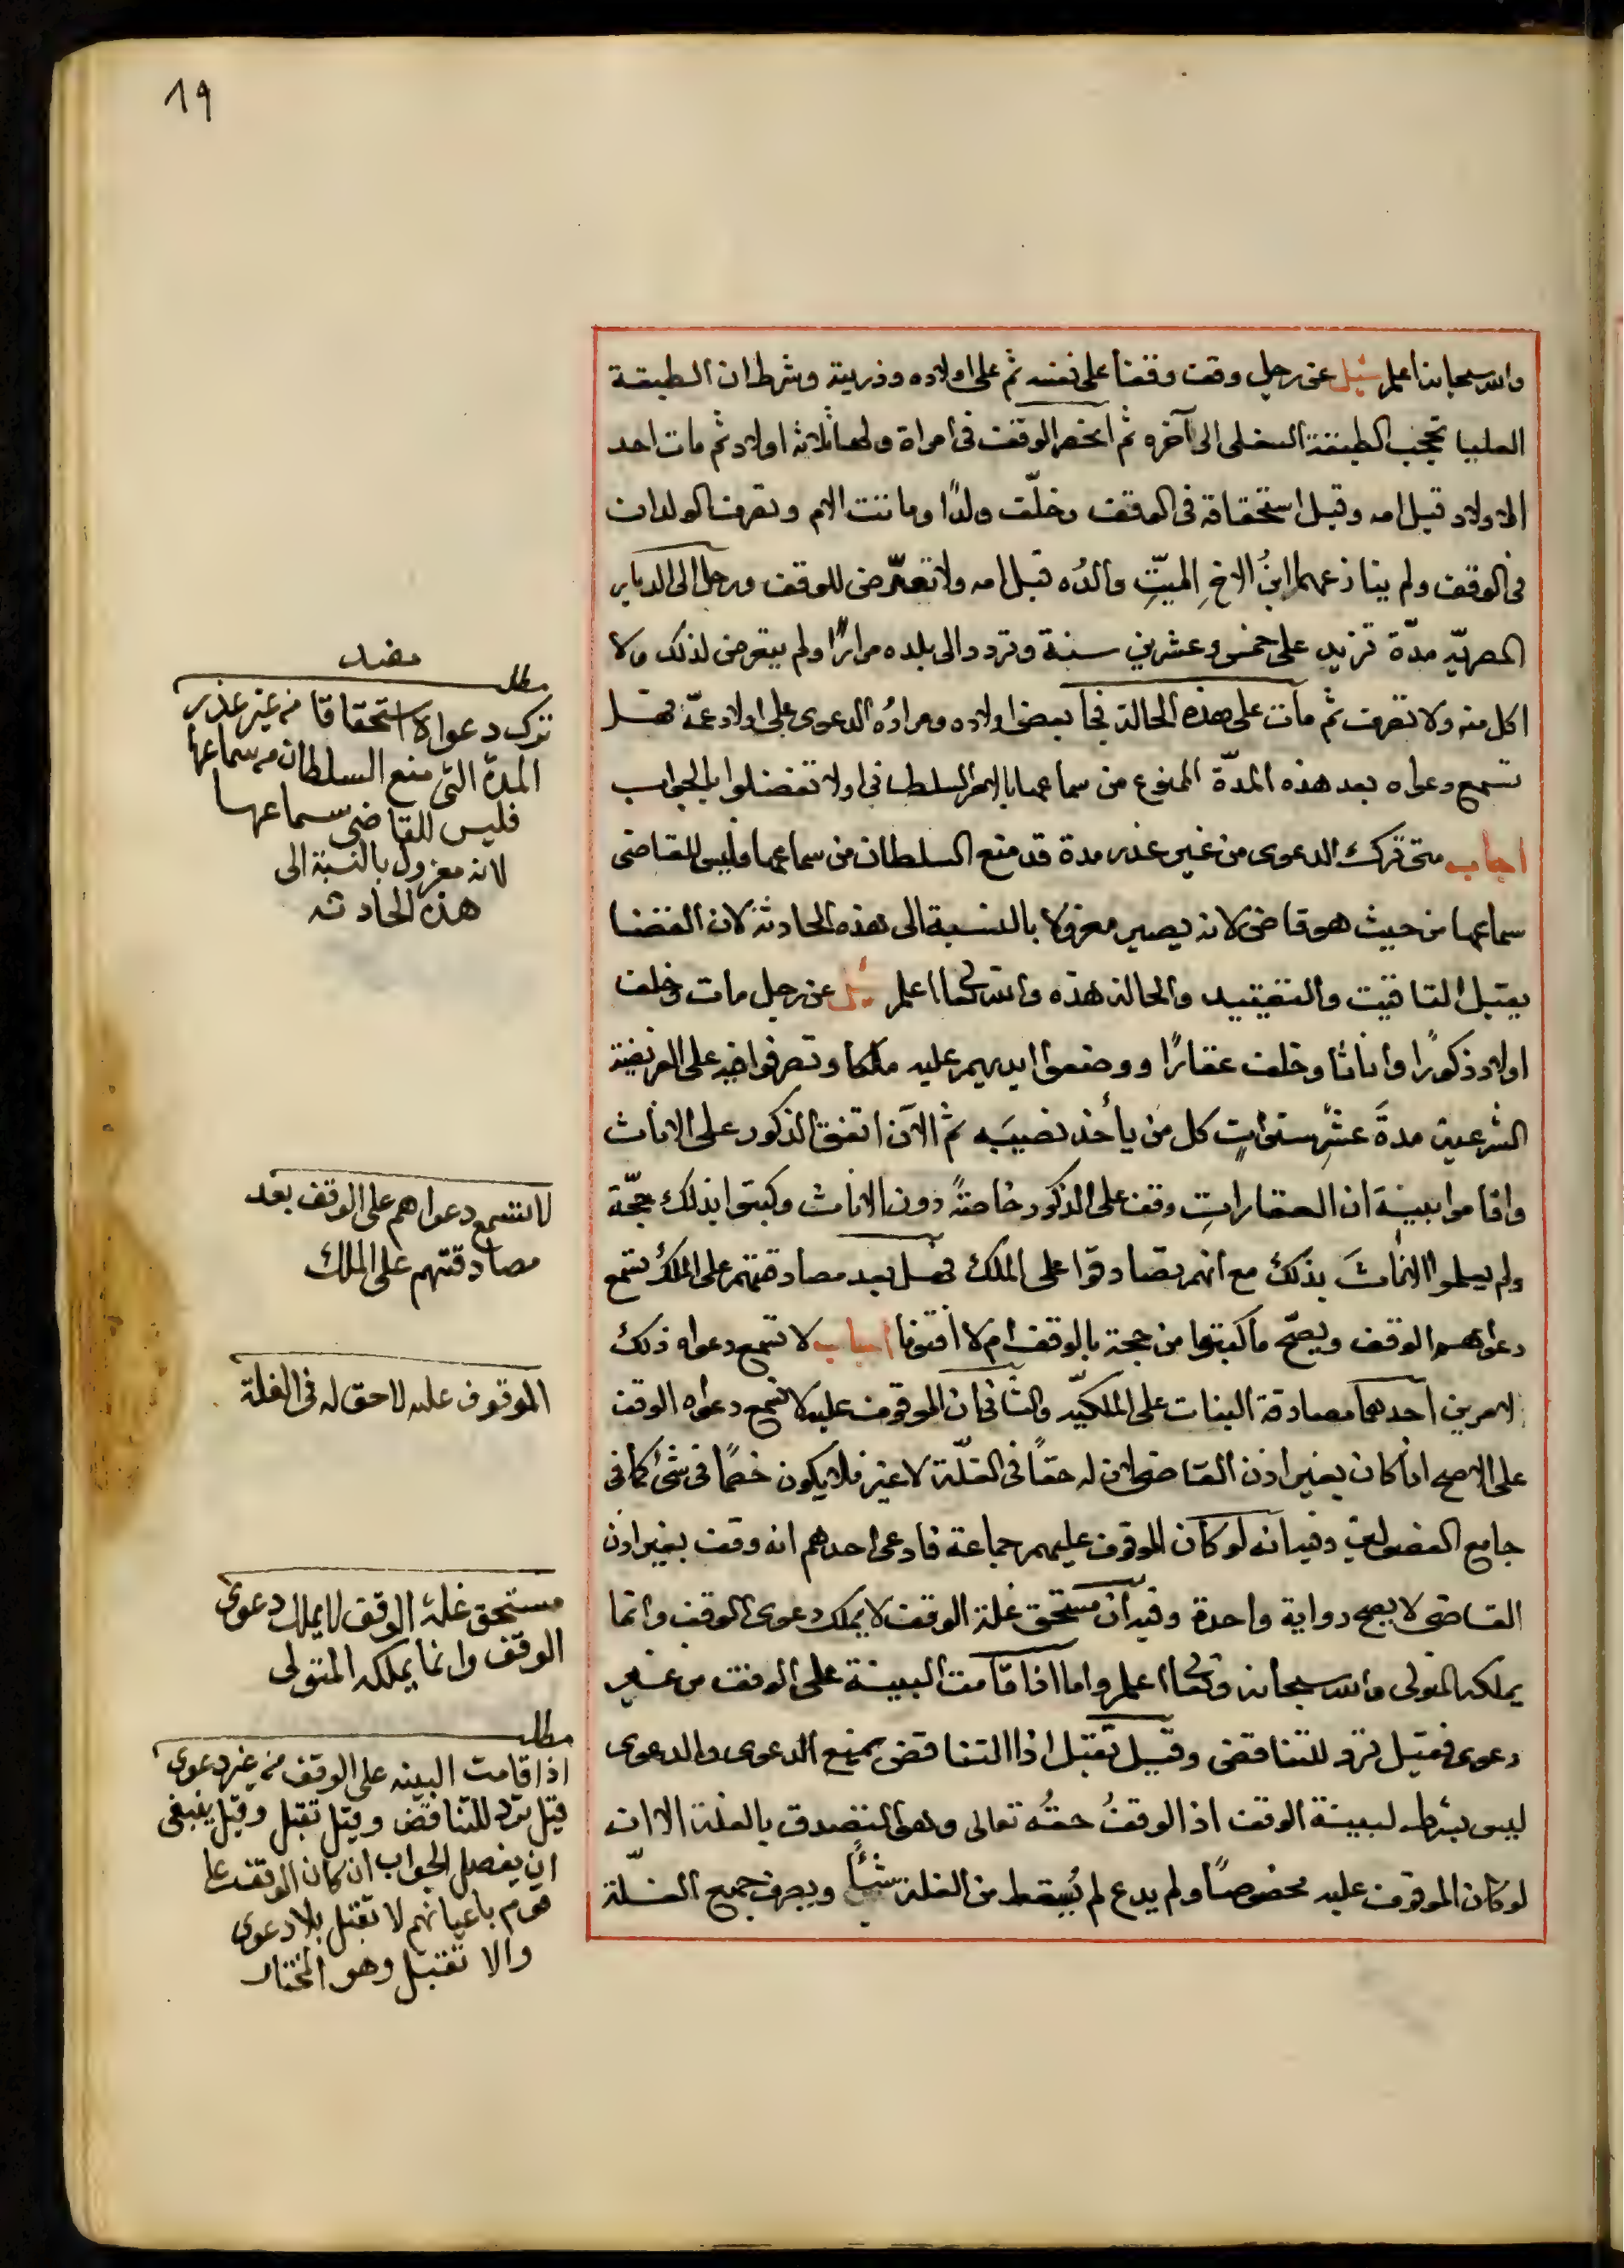 19
والله سبحانه اعلم سئل عن رجل وقف وقفا على نفسه ثم على اولاده وذريته وشرط ان الطبقة
العليا تحجب الطبقة السفلى الى آخره ثم انحصر الوقف في امراة ولها ثلاثة اولاد ثم مات احد
الاولاد قبل امه وقبل استحقاقه في الوقف وخلّف ولدًا وماتت الام وتصرف الولدان
في الوقف ولم ينازعهما ابنُ الاخِ الميّتِ والدُه قبل امه ولا تعرّض للوقف ورحل الى الديار
المصريّه مدّة تزيد على خمس وعشرين سنة وتردد الى بلده مرارًا ولم يتعرض لذلك ولا
اكل منه ولا تصرف ثم مات على هذه الحالة فجا بعض اولاده ومرادُه الدعوى على اولاد عمّه فهل
تسمع دعواه بعد هذه المدّة الممنوع من سماعها بالامر السلطاني اولا تفضلوا بالجواب
اجاب متى ترك الدعوى من غير عذر مدة قد منع السلطان من سماعها فليس للقاضى
سماعها من حيث هو قاضى لانه يصير معزولا بالنسبة الى هذه الحادثة لان القضا
يقبل التاقيت والتقييد والحالة هذه والله تعالى اعلم سئل عن رجل مات وخلف
اولاد ذكورًا واناثا وخلف عقارًا ووضعوا ايديهم عليه ملكا وتصرفوا فيه على الفريضة
الشرعية مدةَ عشرِ سنواتٍ كل من يأخذ نصيبَه ثم الآن اتفق الذكور على الاناث
واقاموا بينة ان العقاراتِ وقف على الذكور خاصةً دون الاناث وكتبوا بذلك حجّة
ولم يعلموا الاناثَ بذلك مع انهم تصادقوا على الملك فهل بعد مصادقتهم على الملك تسمع
دعواهم الوقف ويصحّ ما كتبوا من حجة بالوقف ام لا افتونا اجاب لا تسمع دعواه ذلك
لامرين احدهما مصادقة البنات على الملكيّه والثانى ان الموقوف عليه لا تسمع دعواه الوقف
على الاصح اذا كان بغير اذن القاضى لان له حقاً فى الغلّة لا غير فلا يكون خصمًا فى شئ كما فى
جامع الفصولين وفيه انه لو كان الموقوف عليهم جماعة فادعى احدهم انه وقف بغير اذن
القاضى لا يصح رواية واحدة وفيه ان مستحق غلة الوقف لا يملك دعوى الوقف وانما
يملكه المتولى والله سبحانه وتعالى اعلم واما اذا قامت البينة على الوقف من غير
دعوى فقيل ترد للتناقض وقيل تقبل اذا التناقض يمنع الدعوى والدعوى
ليس بشرط لبينة الوقف اذ الوقفُ حقُه تعالى وهو التصدق بالغلة الا ان
لو كان الموقوف عليه مخصوصًا ولم يدع لم يُعط من الغلة شيأً ويصرف جميع الغلّة
مطلب مفيد
ترك دعواه استحقاقا من غير عذر
المدة التى منع السلطان من سماعها
فليس للقاضى سماعها
لانه معزول بالنسبة الى
هذه الحادثه
لا تسمع دعواهم على الوقف بعد
مصادقتهم على الملك
الموقوف عليه لا حق له فى الغلة
مستحق غلة الوقف لا يملك دعوى
الوقف وانما يملكه المتولى
مطلب
اذا قامت البينه على الوقف من غير دعوى
قيل ترد للتناقض وقيل تقبل وقيل ينبغى
ان يفصل الجواب ان كان الوقف على
قوم باعيانهم لا تقبل بلا دعوى
والا تقبل وهو المختار